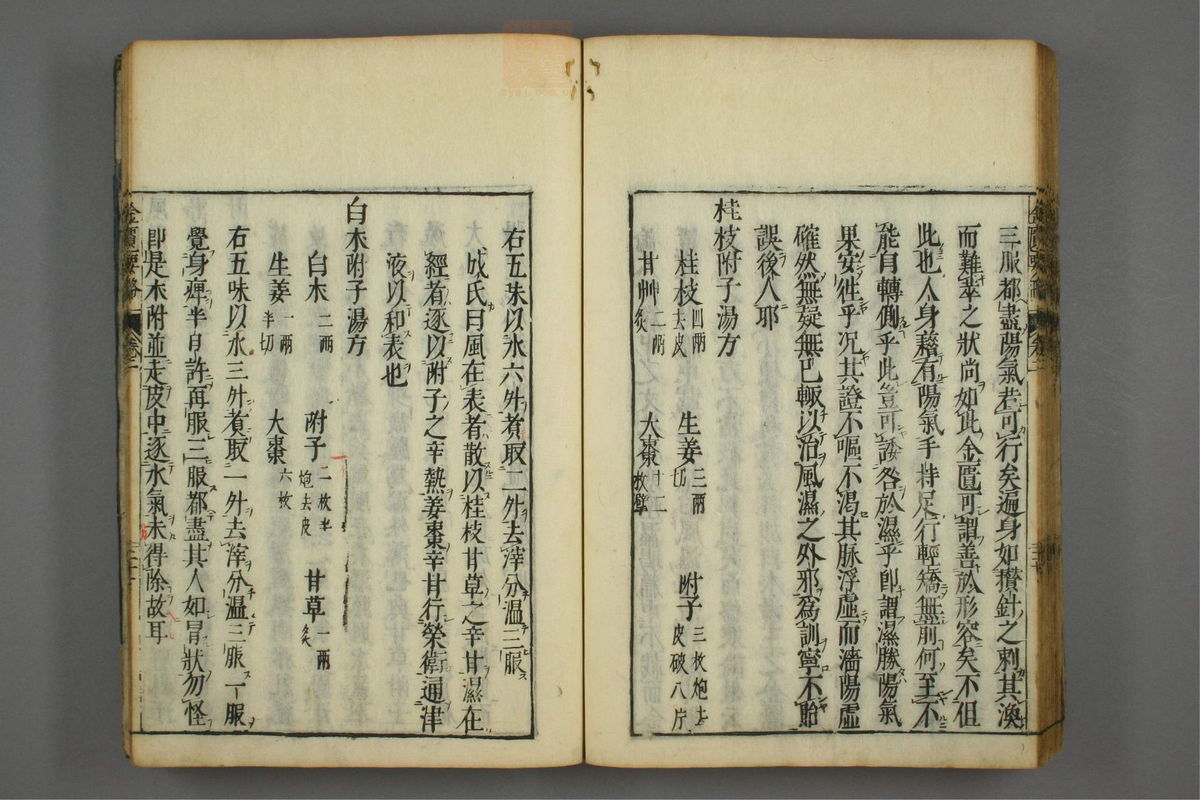 三服都盡陽氣若可行矣遍身如攢針之刺其渙
而難萃之狀尚如此金匱可謂善於形容矣不但
此也人身藉有陽氣手持足行輕矯無前何至不
能自轉側乎此豈可諉咎於濕乎即謂濕勝陽氣
果安徃乎況其證不嘔不渇其脉浮虛而濇陽虛
確然無疑無已輙以治風濕之外邪為訓寧不貽
誤後人耶
桂枝附子湯方
桂枝四兩去皮 生姜三兩切 附子三枚炮去皮破八片
甘艸二兩炙 大棗十二枚擘
右五味以水六升煮取二升去滓分温三服
成氏曰風在表者散以桂枝甘草之辛甘濕在
經者逐以附子之辛熱姜棗辛甘行榮衛通津
液以和表也
白朮附子湯方
白朮二兩 附子一枚半炮去皮 甘草一兩炙
生姜一兩半切 大棗六枚
右五味以水三升煮取一升去滓分温三服一服
覺身痺半日許再服三服都盡其人如冐狀勿怪
即是朮附並走皮中逐水氣未得除故耳
金匱要略 卷二